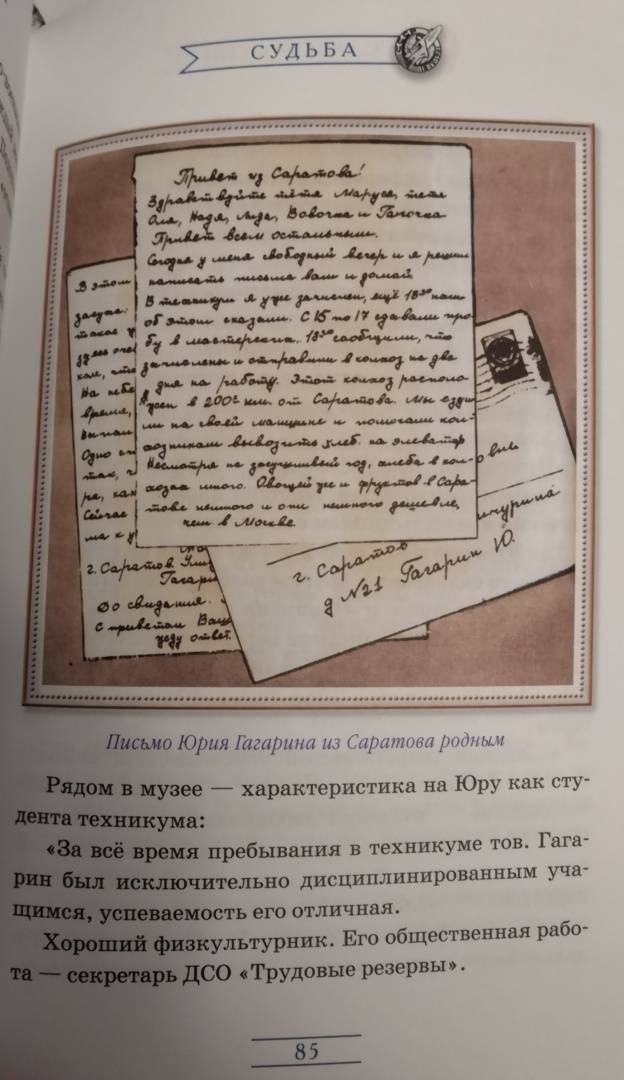 СУДЬБА
Привет из Саратова!
Здравствуйте тётя Маруся, тётя
Оля, Надя, Лида, Вовочка и Галочка
Привет всем остальным.
Сегодня у меня свободный вечер и я решил
написать письма вам и домой
В техникум я уже зачислен, ещё 18го нам
об этом сказали. С 15 по 17 сдавали про-
бу в мастерских. 18го сообщили, что
зачислены и отправили в колхоз на два
дня на работу. Этот колхоз располо
жен в 200х км. от Саратова. Мы езди
ли на своей машине и помогали кол-
хозникам вывозить хлеб на элеватор
Несмотря на засушливый год, хлеба в кол-
хозах много. Овощей уже и фруктов в Сара-
тове немного и они немного дешевле,
чем в Москве.
В этом
засуше
такое
здесь
кам, что
На небе
время,
Одно
так,
ра, как
Сейчас
ма к у
г. Саратов
Гагари
До свидания.
С приветом Ваш
жду ответ.
г. Саратов
чурина
д №21 Гагарин Ю.
Письмо Юрия Гагарина из Саратова родным
Рядом в музее — характеристика на Юру как сту-
дента техникума:
«За всё время пребывания в техникуме тов. Гага-
рин был исключительно дисциплинированным уча-
щимся, успеваемость его отличная.
Хороший физкультурник. Его общественная рабо-
та — секретарь ДСО «Трудовые резервы».
85